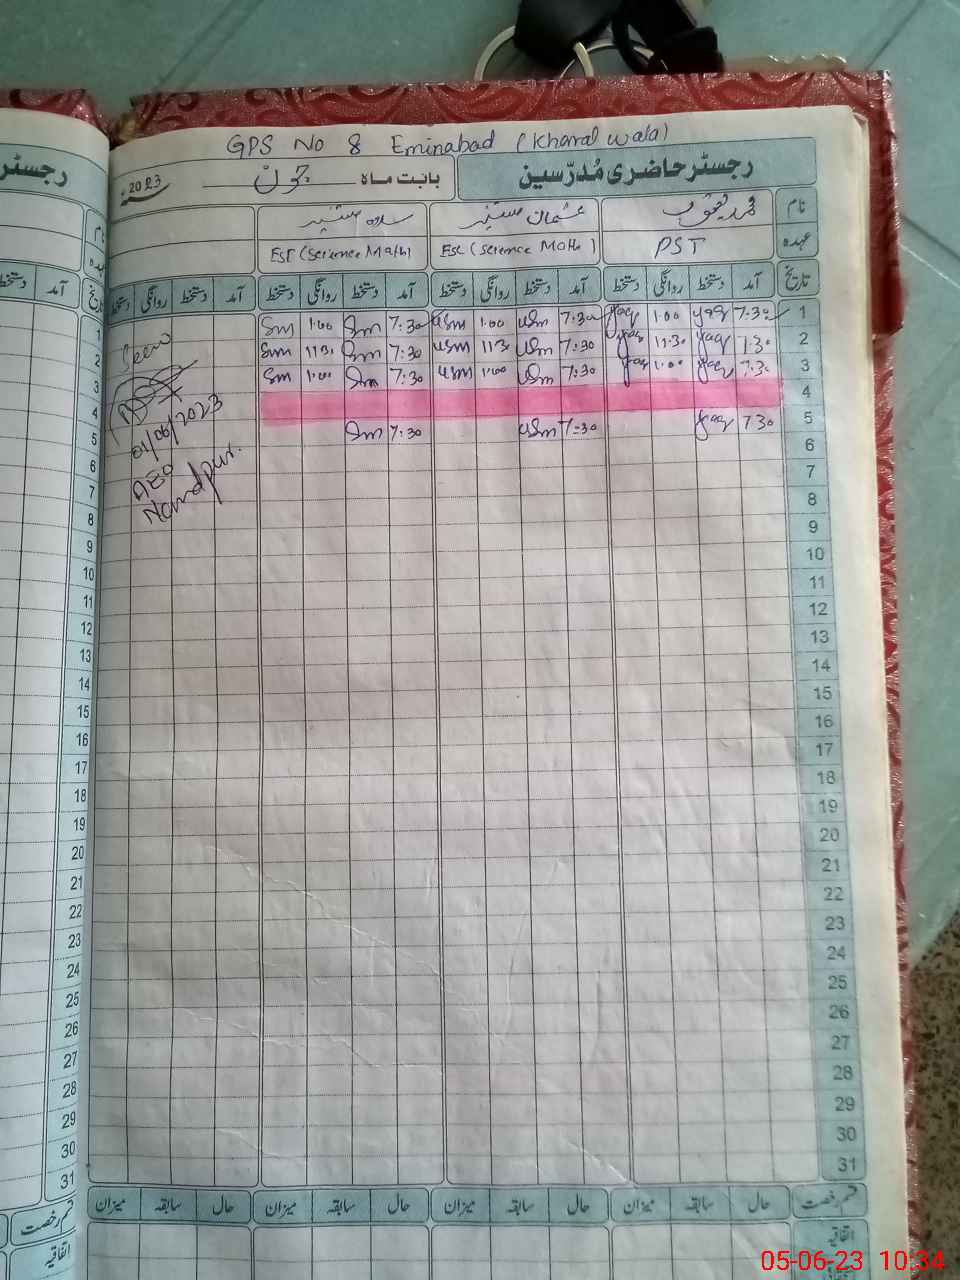 GPS No 8 Eminabad (Kharal Wala)
رجسٹر حاضری مُدرّسین بابت ماہ جون 2023
نام محمد یعقوب عثمان
عہدہ PST ESE (Science Math) ESE (Science Math)
تاریخ آمد دستخط روانگی دستخط آمد دستخط روانگی دستخط آمد دستخط روانگی دستخط آمد دستخط روانگی دستخط
1 7:30 yaq 1:00 yaq 7:30 usm 1:00 usm 7:30 Sm 1:00 Sm
2 7:30 yaq 11:30 yaq 7:30 usm 11:30 usm 7:30 Sm 11:30 Sm
3 7:30 yaq 1:00 yaq 7:30 usm 1:00 usm 7:30 Sm 1:00 Sm
4
5 7:30 yaq 7:30 usm 7:30 Sm
Seen
01/06/2023
AEO
Nandpur.
6
7
8
9
10
11
12
13
14
15
16
17
18
19
20
21
22
23
24
25
26
27
28
29
30
31
قسم رخصت حال سابقہ میزان حال سابقہ میزان حال سابقہ میزان حال سابقہ میزان
اتفاقیہ
رجسٹر
نام
عہدہ
تاریخ آمد دستخط
1
2
3
4
5
6
7
8
9
10
11
12
13
14
15
16
17
18
19
20
21
22
23
24
25
26
27
28
29
30
31
قسم رخصت
اتفاقیہ
05-06-23 10:34